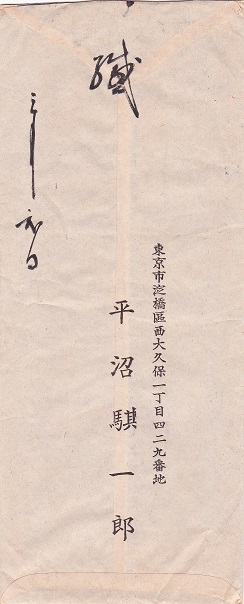 緘
東京市淀橋區西大久保一丁目四二九番地
平沼騏一郎